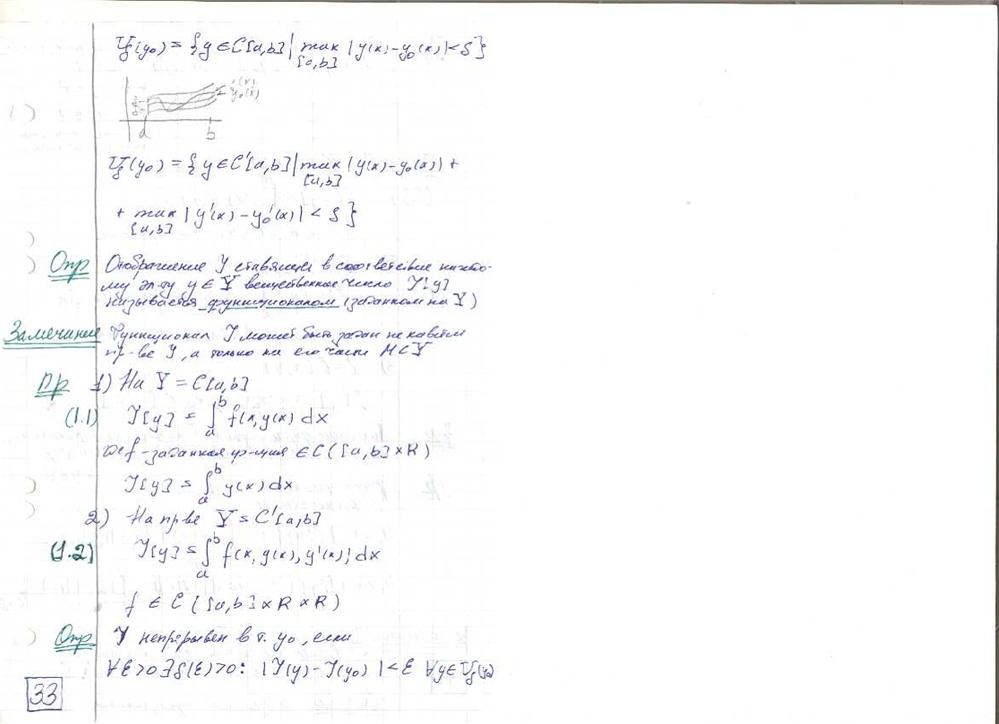 U_δ(y₀) = {y ∈ C[a,b] | max |y(x) - y₀(x)| < δ}
[a,b]
y₀(x)
a b
U_δ(y₀) = {y ∈ C'[a,b] | max |y(x) - y₀(x)| +
[a,b]
+ max |y'(x) - y₀'(x)| < δ}
[a,b]
Опр Отображение J ставящее в соответствие каждо-
му эл-ту y ∈ Y вещественное число J[y]
называется функционалом (заданном на Y)
Замечание Функционал J может быть задан не на всём
пр-ве Y, а только на его части M ⊂ Y
Пр 1) На Y = C[a,b]
(1.1) J[y] = ∫ₐᵇ f(x, y(x)) dx
где f - заданная ф-ция ∈ C([a,b] × R)
J[y] = ∫ₐᵇ y(x) dx
2) На пр-ве Y = C'[a,b]
(1.2) J[y] = ∫ₐᵇ f(x, y(x), y'(x)) dx
f ∈ C([a,b] × R × R)
Опр J непрерывен в т. y₀, если
∀ε>0 ∃δ(ε)>0: |J(y) - J(y₀)| < ε ∀y ∈ U_δ(y₀)
33